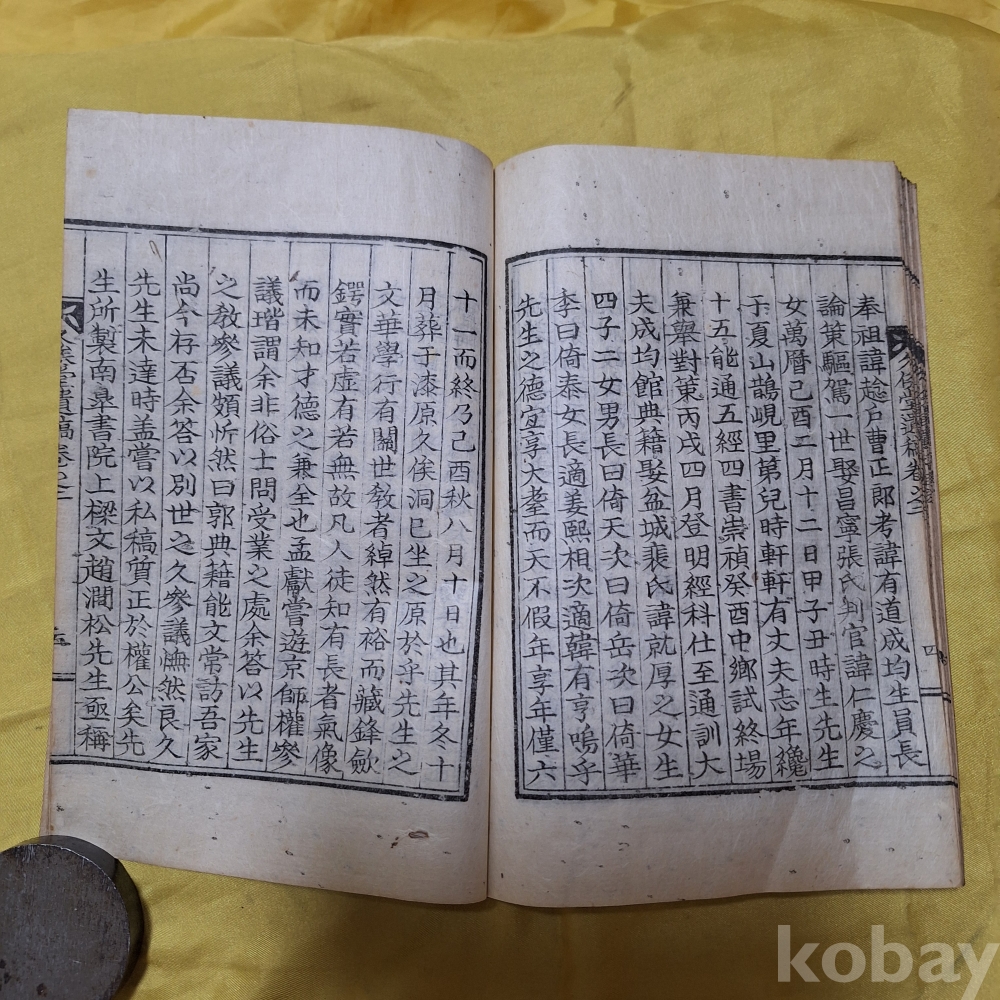 奉祖諱趁戶曹正郎考諱有道成均生員長
論策驅駕一世娶昌寧張氏判官諱仁慶之
女萬曆己酉二月十二日甲子丑時生先生
于夏山鵲峴里第兒時軒軒有丈夫志年纔
十五能通五經四書崇禎癸酉中鄉試終場
兼舉對策丙戌四月登明經科仕至通訓大
夫成均館典籍娶盆城裴氏諱就厚之女生
四子二女男長曰倚天次曰倚岳次曰倚華
季曰倚泰女長適姜熙相次適韓有亨嗚乎
先生之德宜享大耋而天不假年享年僅六
十一而終乃己酉秋八月十日也其年冬十
月葬于漆原久俟洞巳坐之原於乎先生之
文華學行有關世教者綽然有裕而藏鋒斂
鍔實若虛有若無故凡人徒知有長者氣像
而未知才德之兼全也孟獻嘗遊京師權參
議瑎謂余非俗士問受業之處余答以先生
之教參議頗忻然曰郭典籍能文常訪吾家
尚今存否余答以別世之久參議憮然良久
先生未達時盖嘗以私稿質正於權公矣先
生所製南皐書院上樑文趙澗松先生亟稱
遺稿卷之二
五
kobay